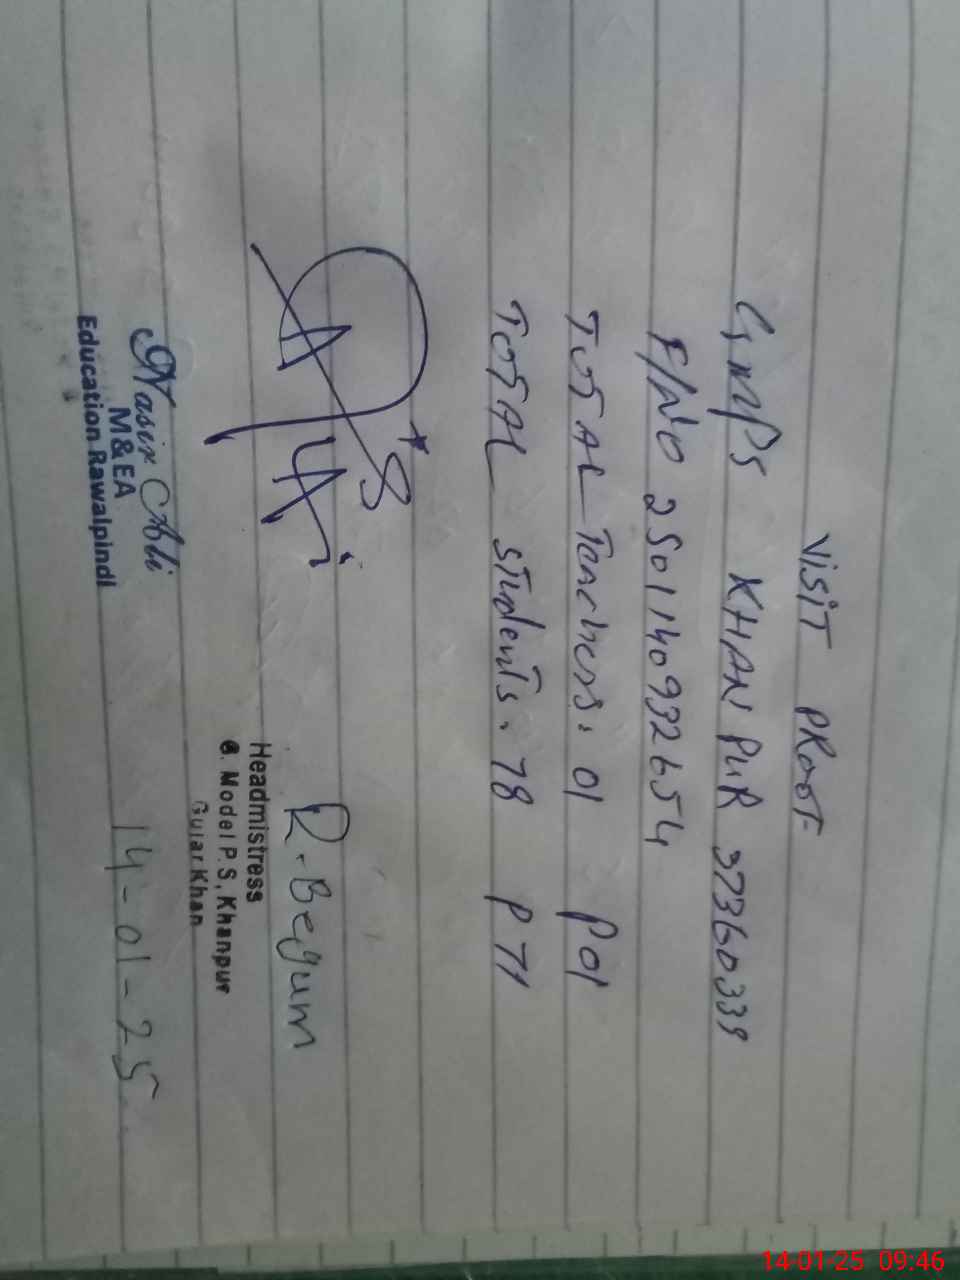 VISIT PROOF
GMPS KHANPUR 37360339
F/NO 2501140932654
TOTAL Teachers: 01 P01
TOTAL Students: 78 P 71
R. Begum
Headmistress
G. Model P.S, Khanpur
Gujar Khan
Nasir Ali
M & EA
Education Rawalpindi
14-01-25
14-01-25 09:46